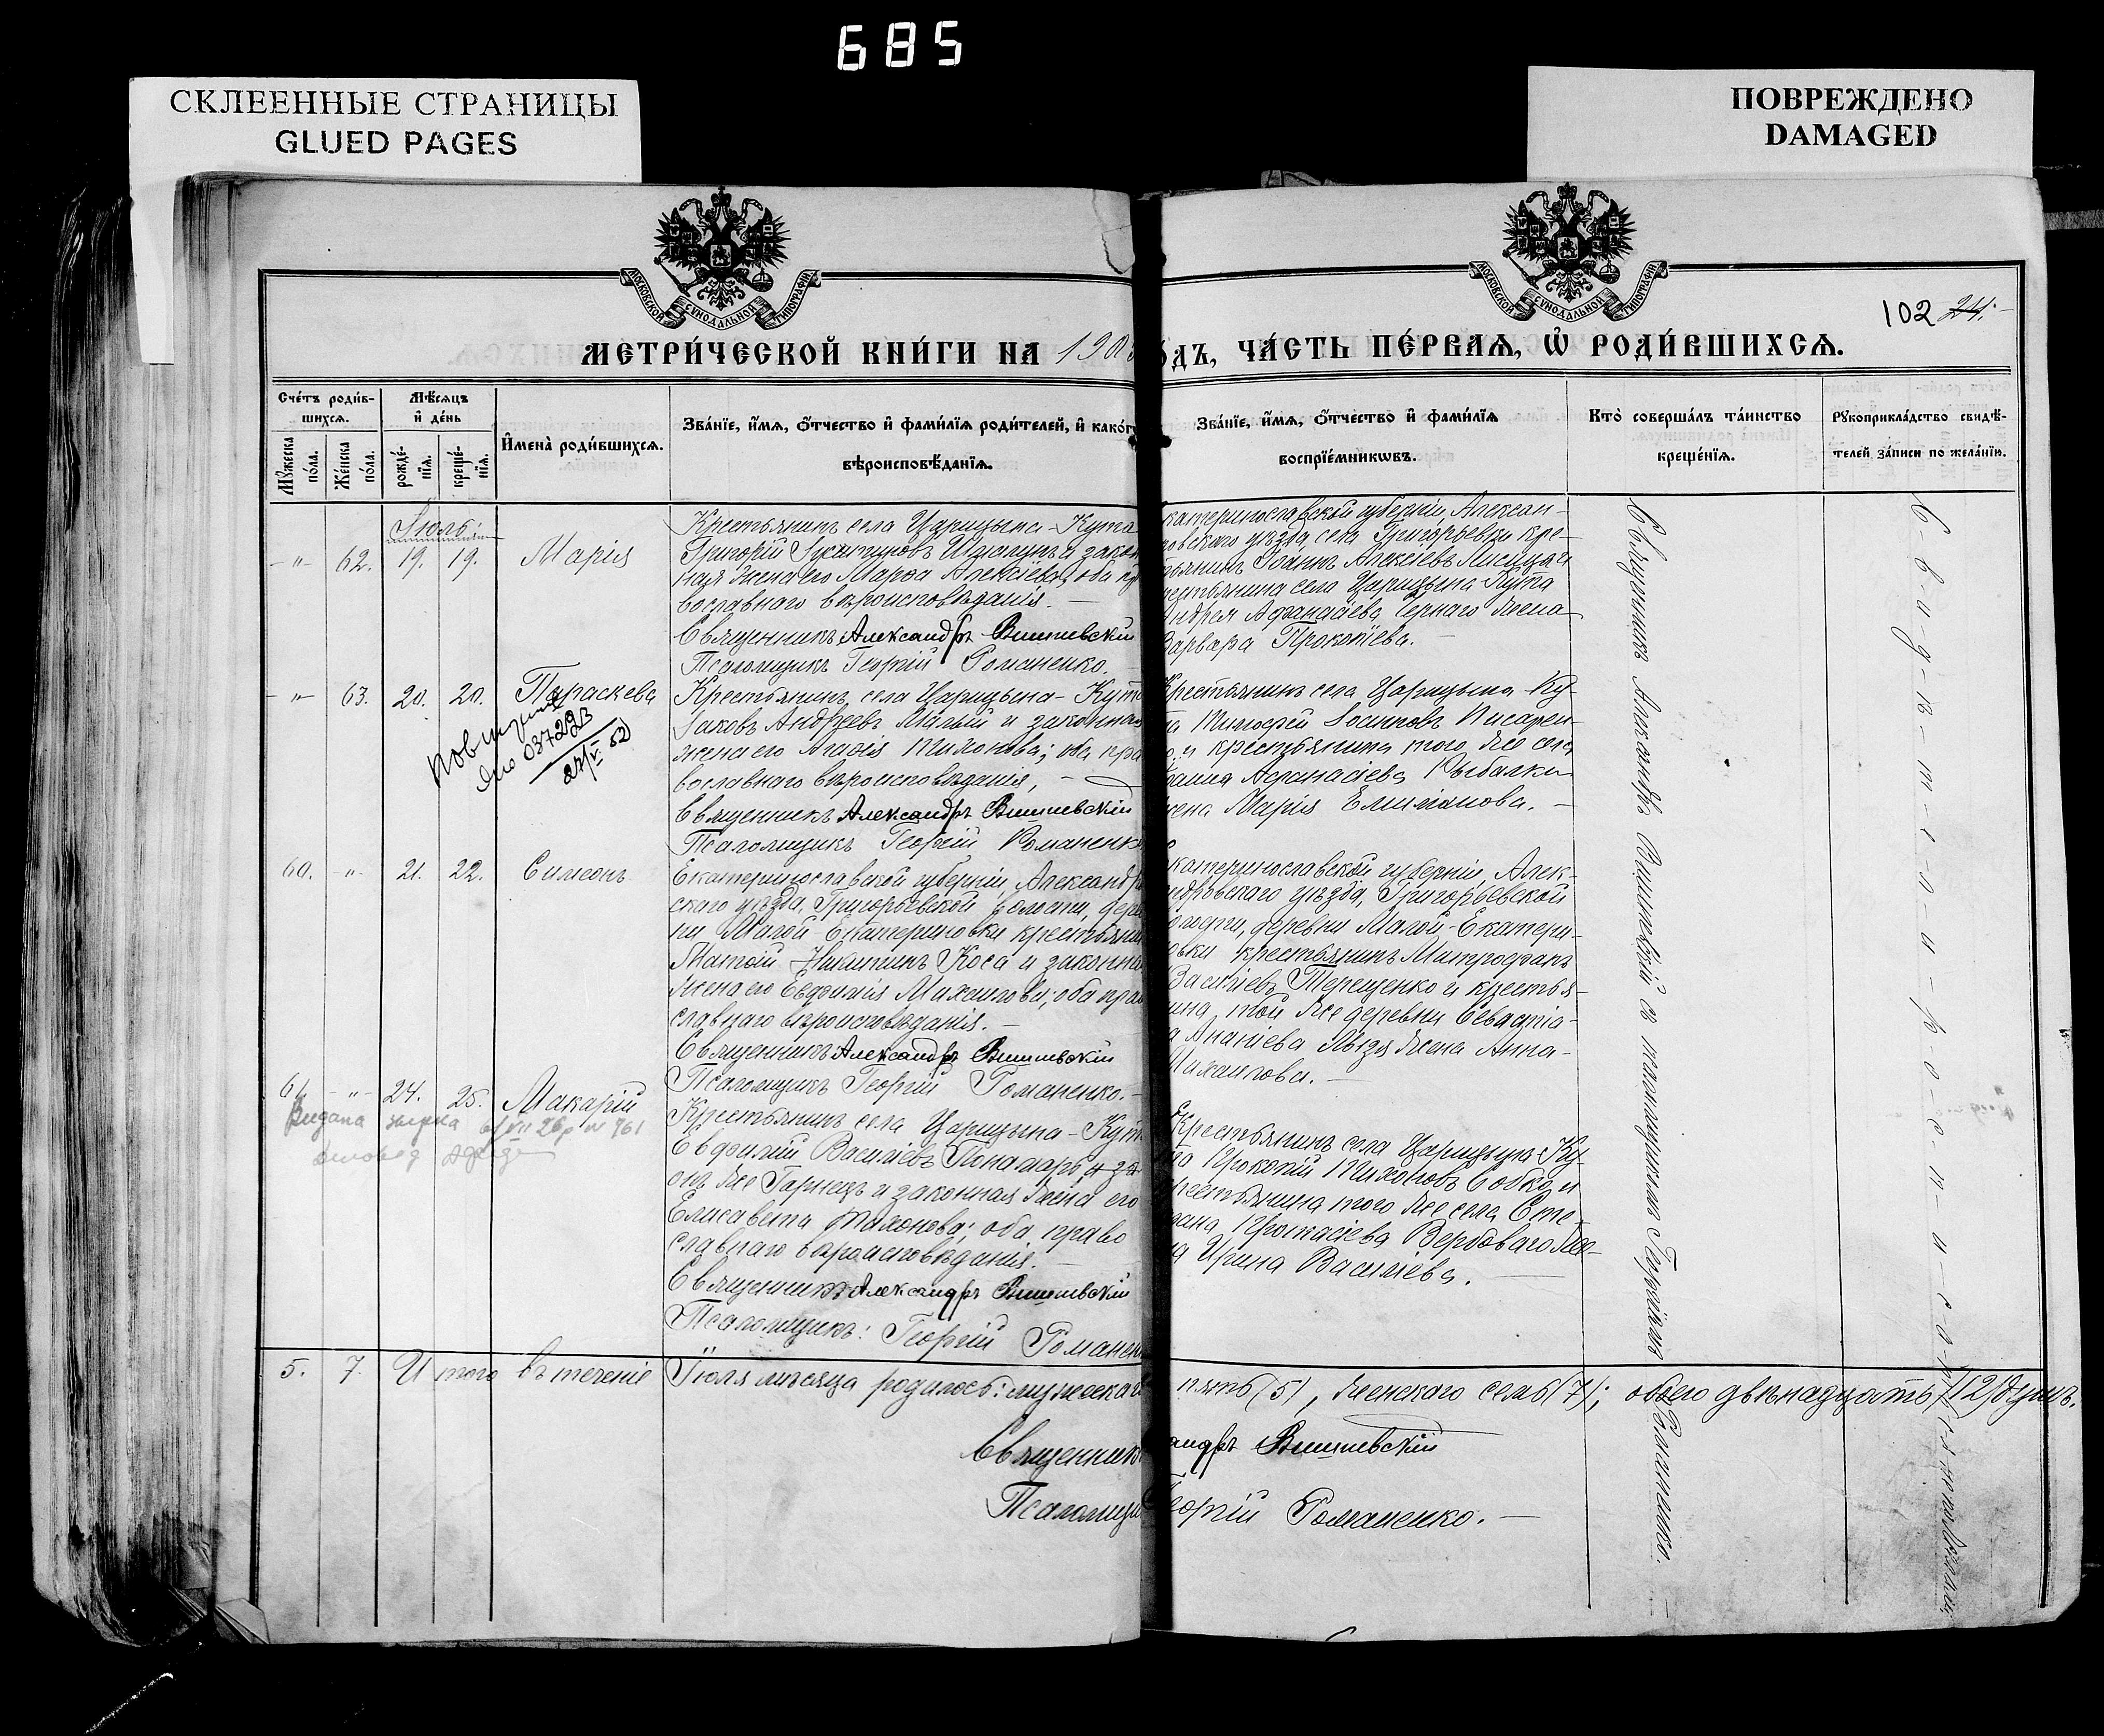 685
СКЛЕЕННЫЕ СТРАНИЦЫ
GLUED PAGES
ПОВРЕЖДЕНО
DAMAGED
МОСКОВСКОЙ СУНОДАЛЬНОЙ ТИПОГРАФІИ
МОСКОВСКОЙ СУНОДАЛЬНОЙ ТИПОГРАФІИ
102 24.
МЕТРИ́ЧЕСКОЙ КНИ́ГИ НА 190
ОДЪ, ЧА́СТЬ ПЕ́РВАѦ, Ѡ҆ РОДИ́ВШИХСѦ.
Сче́тъ роди́вшихсѧ.
Мꙋ́жеска по́ла.
Же́нска по́ла.
Мѣ́сѧцъ и҆ де́нь
рожде́нїѧ.
креще́нїѧ.
И҆мена̀ роди́вшихсѧ.
Зва́нїе, и҆́мѧ, ѻ҆́тчество и҆ фами́лїѧ роди́телей, и҆ како́г
вѣроисповѣ́данїѧ.
Зва́нїе, и҆́мѧ, ѻ҆́тчество и҆ фами́лїѧ
воспрїе́мникѡвъ.
Кто̀ соверша́лъ та́инство
креще́нїѧ.
Рꙋкоприкла́дство свидѣ́-
телей за́писи по жела́нїю.
Іюль
-"- 62. 19. 19. Марія
Крестьянинъ села Царицына-Кута
Григорій и закон
ная жена его Марѳа Алексіева; оба пра
вославнаго вѣроисповѣданія. —
Священникъ Александръ Вишневскій
Псаломщикъ Георгій Романенко.
катеринославской губерніи, Алексан-
ровскаго уѣзда, села Григорьевки кре-
тьянинъ Іоаннъ Алексіевъ Лисица и
рестьянина села Царицына-Кута
Андрея Аѳанасіева Чернаго жена
Варвара Прокопіева. —
-"- 63. 20. 20. Параскева
037223
27/V 52
Крестьянинъ села Царицына-Кута
Іаковъ Андреевъ Малый и законная
жена его Агаѳія Тихонова; оба пра
вославнаго вѣроисповѣданія, —
Священникъ Александръ Вишневскій
Псаломщикъ Георгій Романенк
Крестьянинъ села Царицына-Ку-
та Тимоѳей Іосифовъ Писарен-
о и крестьянина того же села
Аѳанасіева Рыбалки
жена Марія Емиліанова. —
60. -"- 21. 22. Симеонъ
Екатеринославской губерніи, Александр
скаго уѣзда, Григорьевской волости, дерев
ни Малой-Екатериновки крестьянин
Матѳій Никитинъ Коса и законна
жена его Евфимія Михаилова; оба прав
славнаго вѣроисповѣданія. —
Священникъ Александръ Вишневскій
Псаломщикъ Георгій Романенко. —
катеринославской губерніи, Алек-
андровскаго уѣзда, Григорьевской
олости, деревни Малой-Екатери-
овки крестьянинъ Митрофанъ
Василіевъ Терещенко и крестья-
ина той же деревни Севастіа-
а Ананіева жена Анна
Михаилова. —
61. -"- 24. 25. Макарій
Видана
Крестьянинъ села Царицына-Кута
Евфимій Василіевъ Пономарь, а з
онъ же Горнецъ и законная жена его
Елисавета Тихонова; оба право
славнаго вѣроисповѣданія. —
Священникъ Александръ Вишневскій
Псаломщикъ: Георгій Романен
Крестьянинъ села Царицына-Ку-
та Прокопій Тихоновъ Собко и
рестьянина того же села Сте-
фана Протасіева Вербоваго же-
на Ирина Василіева. —
Священникъ Александръ Вишневскій съ псаломщикомъ Георгіемъ Романенко. —
5. 7. Итого въ теченіе Іюля мѣсяца родилось: мужескаго
пять (5), женскаго семь (7); обоего двѣнадцать (12) душъ.
Священникъ
андръ Вишневскій
Псаломщи
Георгій Романенко. —